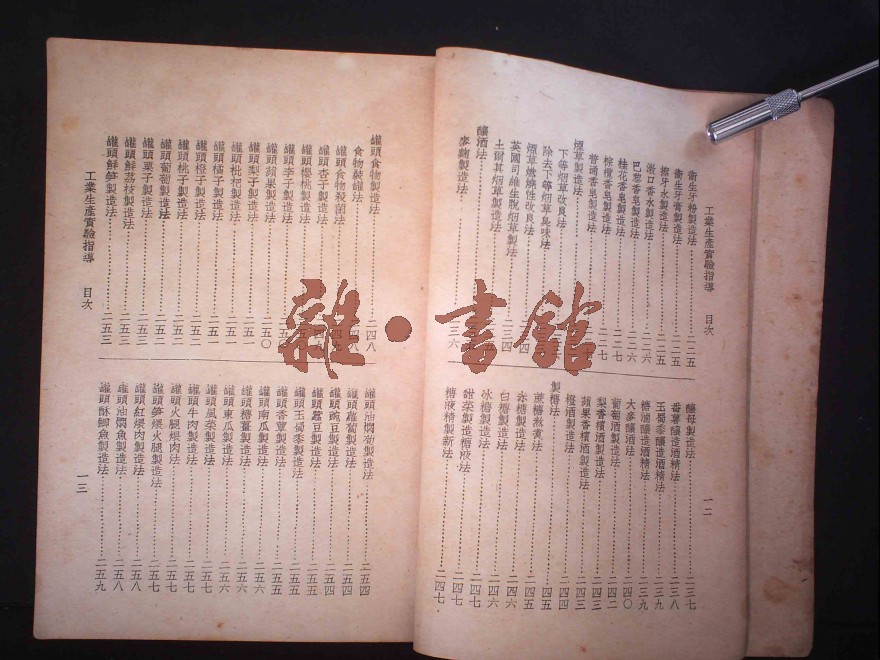 工業生產實驗指導 目次 一二
衛生牙粉製造法……二二五
衛生牙膏製造法……二二五
擦牙水製造法……二二五
漱口香水製造法……二二六
巴黎香皂製造法……二二六
桂花香皂製造法……二二七
棕欖香皂製造法……二二七
普通香皂製造法
煙草製造法
下等烟草改良法
除去下等烟草臭味法
煙草燃燒性改良法
英國司維生脫烟草製法
土耳其烟草製造法
釀酒法
麥麴製造法
釀母製造法……二三七
番薯釀造酒精法……二三八
玉蜀黍釀造酒精法……二三九
糖蜜釀造酒精法……二三九
大麥釀酒法……二四〇
葡萄酒製造法……二四二
梨香檳酒製造法……二四三
蘋果香檳酒製造法……二四三
橙酒製造法……二四四
製糖法
蔗糖煎黃法……二四五
赤糖製造法……二四五
白糖製造法……二四六
冰糖製造法……二四六
甜菜製造糖液法……二四七
糖液精製新法……二四七
罐頭食物製造法……二四八
食物裝罐法
罐頭食物殺菌法
罐頭杏子製造法
罐頭櫻桃製造法
罐頭李子製造法
罐頭蘋果製造法
罐頭梨子製造法……二五〇
罐頭枇杷製造法……二五一
罐頭橘子製造法……二五一
罐頭橙子製造法……二五一
罐頭桃子製造法……二五二
罐頭葡萄製造法……二五二
罐頭栗子製造法……二五二
罐頭鮮荔枝製造法……二五三
罐頭鮮筍製造法……二五三
罐頭油燜筍製造法……二五四
罐頭蘿蔔製造法……二五四
罐頭豌豆製造法……二五四
罐頭蠶豆製造法……二五五
罐頭玉蜀黍製造法……二五五
罐頭香蕈製造法……二五五
罐頭南瓜製造法……二五六
罐頭糖薑製造法……二五六
罐頭東瓜製造法……二五六
罐頭風菜製造法……二五七
罐頭牛肉製造法……二五七
罐頭火腿煨肉法……二五七
罐頭筍煨火腿製造法……二五七
罐頭紅煨肉製造法……二五八
罐頭油燜魚製造法……二五八
罐頭酥鯽魚製造法……二五九
工業生產實驗指導 目次 一三
雜·書館